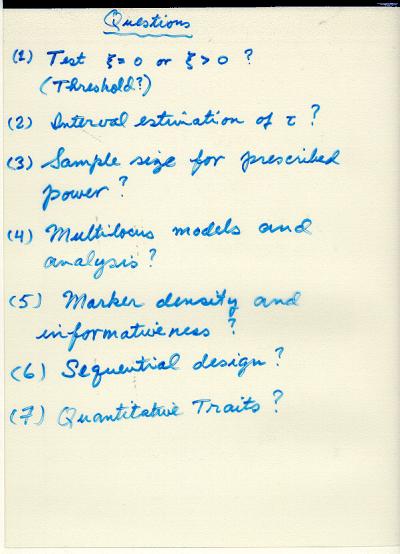 Questions
(1) Test ξ = 0 or ξ > 0 ?
(Threshold?)
(2) Interval estimation of τ ?
(3) Sample size for prescribed
power ?
(4) Multilocus models and
analysis ?
(5) Marker density and
informativeness ?
(6) Sequential design ?
(7) Quantitative Traits ?